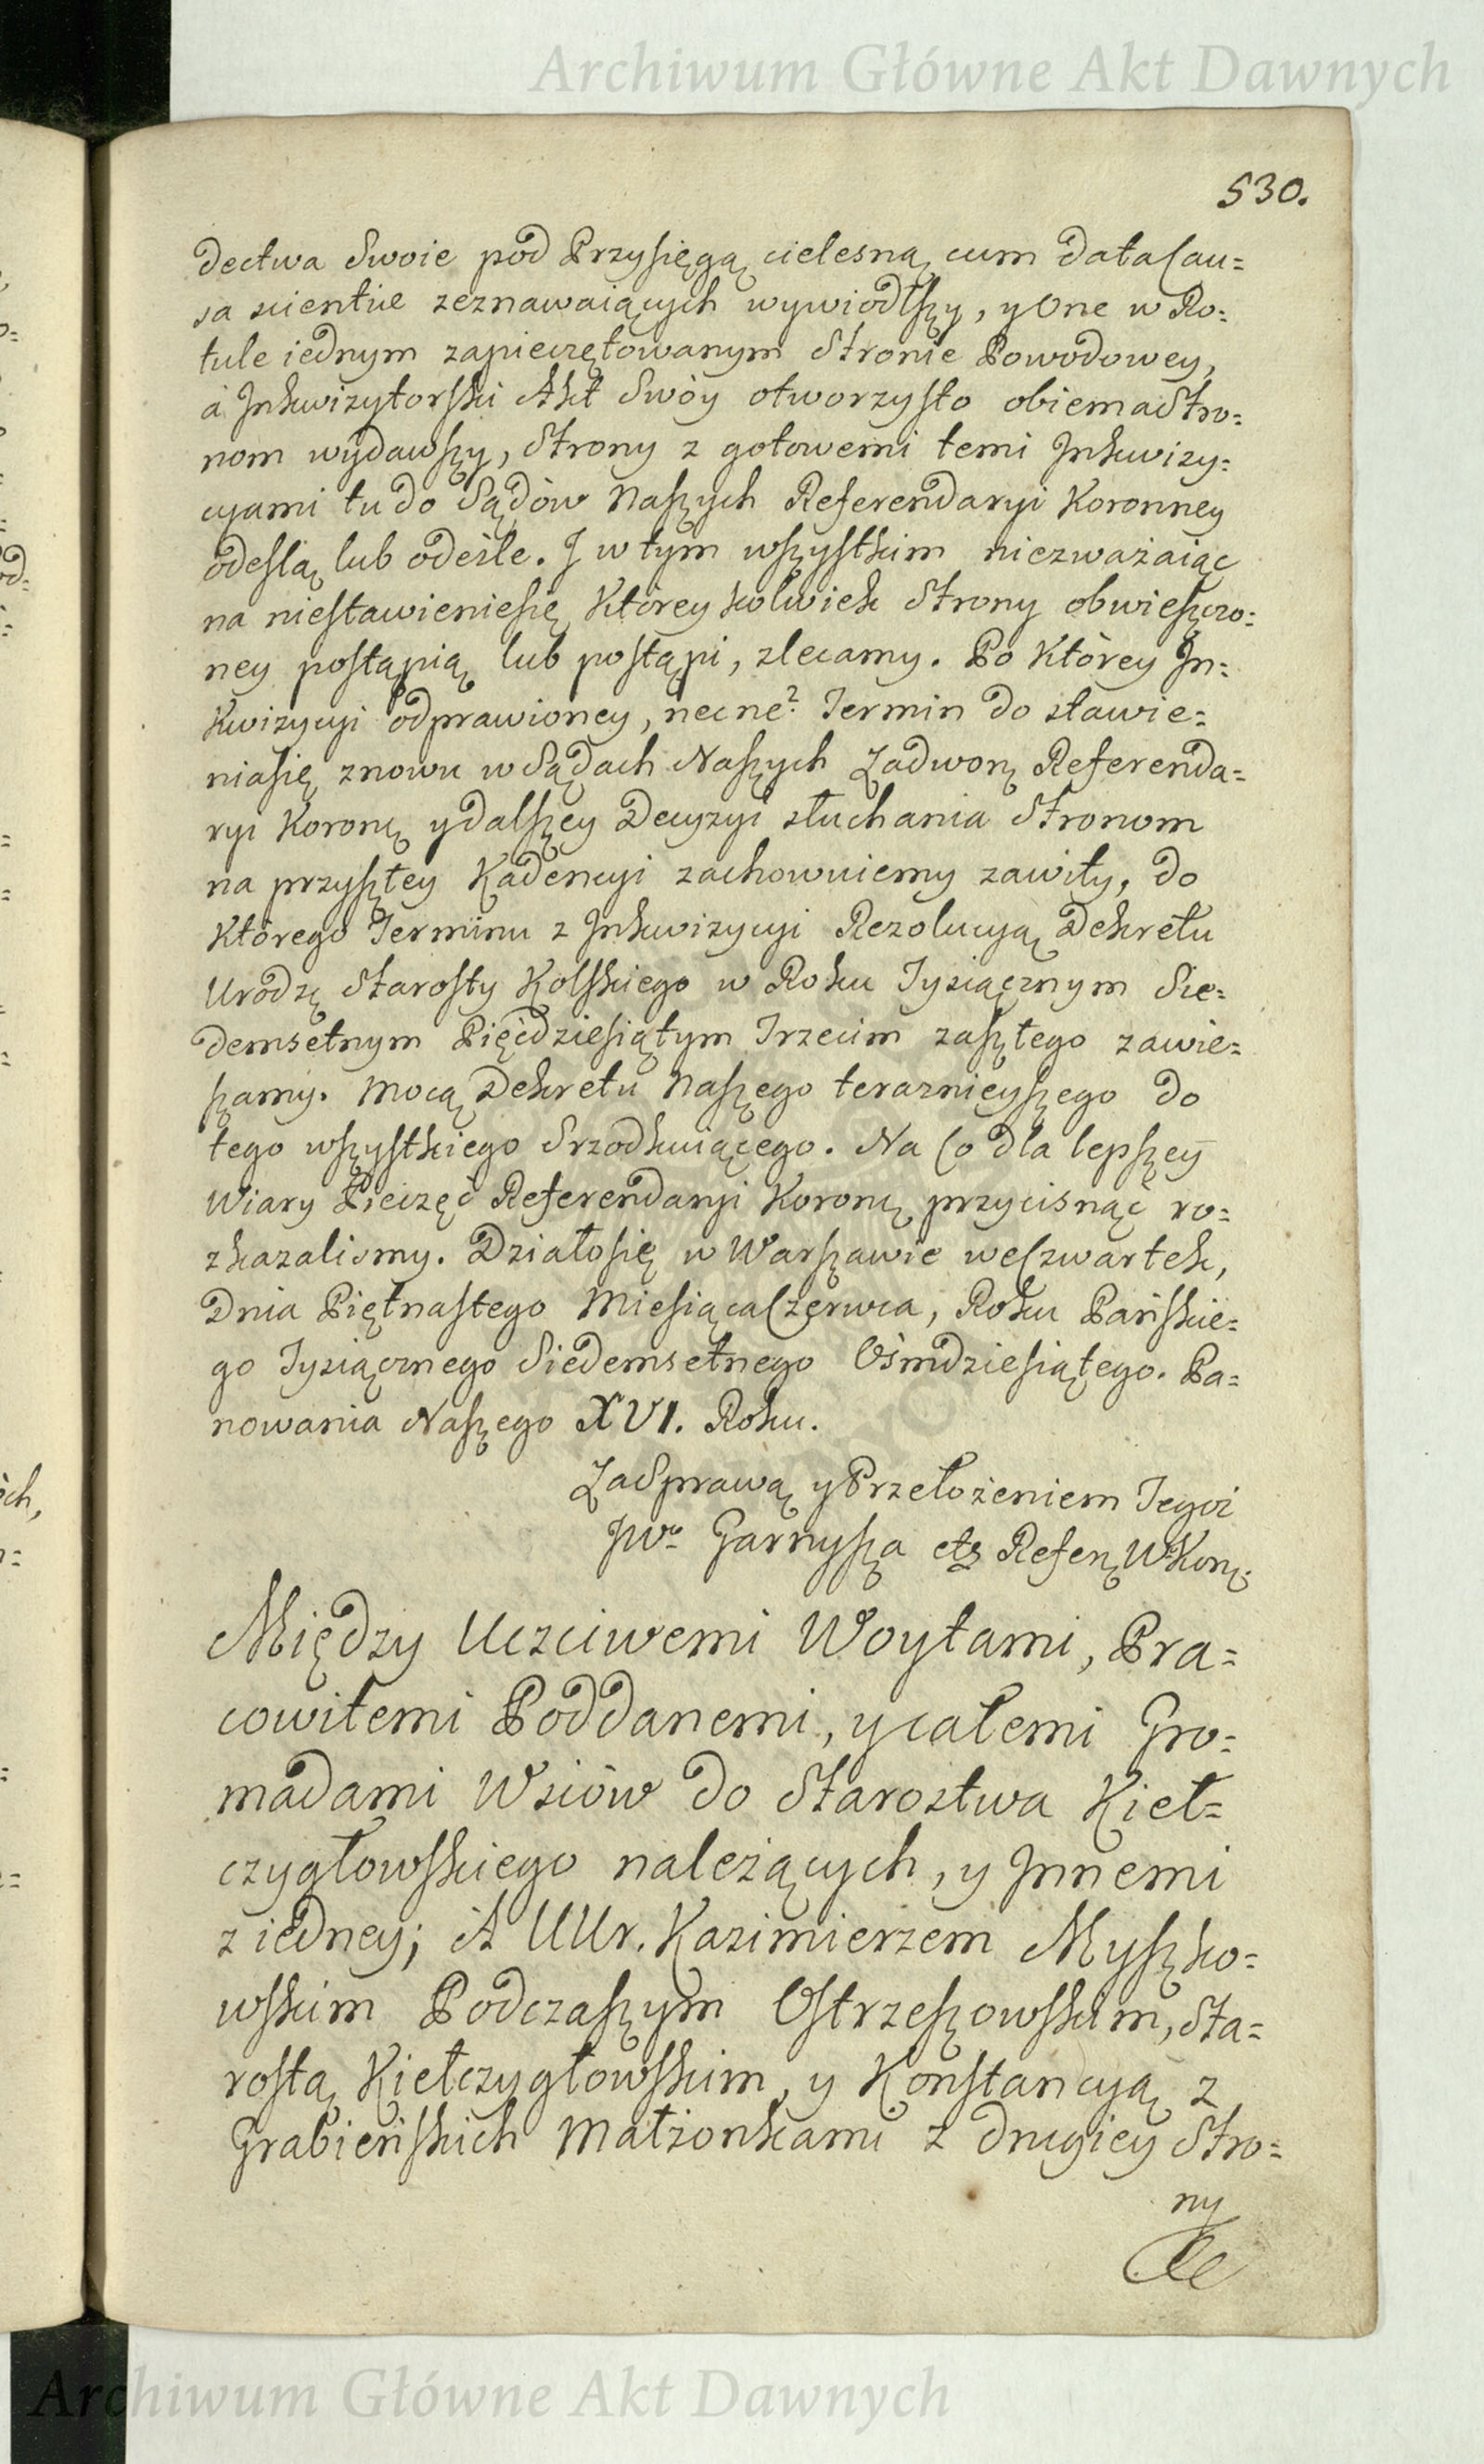 Archiwum Główne Akt Dawnych
530.
dectwa Swoie pod Przysięgą cielesną cum data Cau=
sa scientiæ zeznawaiących wywiodłszy, y One w Ro=
tule iednym zapieczętowanym Stronie Powodowey,
à Inkwizytorski Akt Swóy otworzysto obiema Stro=
nom wydawszy, Strony z gotowemi temi Inkwizy=
cyami tu do Sądów Naszych Referendaryi Koronney
odeslą lub odeśle. I w tym wszystkim niezważaiąc
na niestawieniesię Którey kolwiek Strony obwieszczo=
ney postąpią lub postąpi, zlecamy. Po Którey In=
kwizycyi odprawioney, necne? Termin do stawie=
niasię znowu w Sądach Naszych Zadwor. Referenda=
ryi Koron. y dalszey Decyzyi słuchania Stronom
na przyszłey Kadencyi zachowuiemy zawity, do
Którego Terminu z Inkwizycyi Rezolucyą Dekretu
Urodz. Starosty Kolskiego w Roku Tysiącznym Sie=
demsetnym Pięćdziesiątym Trzecim zaszłego zawie=
szamy. Mocą Dekretu Naszego teraznieyszego do
tego wszystkiego Srzodkuiącego. Na Co dla lepszey
Wiary Pieczęć Referendaryi Koron. przycisnąć ro=
zkazalismy. Działosię w Warszawie we Czwartek,
Dnia Piętnastego Miesiąca Czerwca, Roku Pańskie=
go Tysiącznego Siedemsetnego Ośmdziesiątego. Pa=
nowania Naszego XVI. Roku.
Za Sprawą y Przełożeniem Tegoż
JWo Garnysza etc Referen. W. Kor.
Między Uczciwemi Woytami, Pra=
cowitemi Poddanemi, y całemi Gro=
madami Wsiów do Starostwa Kieł=
czygłowskiego należących, y Innemi
z iedney; A UUr. Kazimierzem Myszko=
wskim Podczaszym Ostrzeszowskim, Sta=
rostą Kiełczygłowskim, y Konstancyą z
Grabieńskich Małżonkami z drugiey Stro=
ny
Archiwum Główne Akt Dawnych